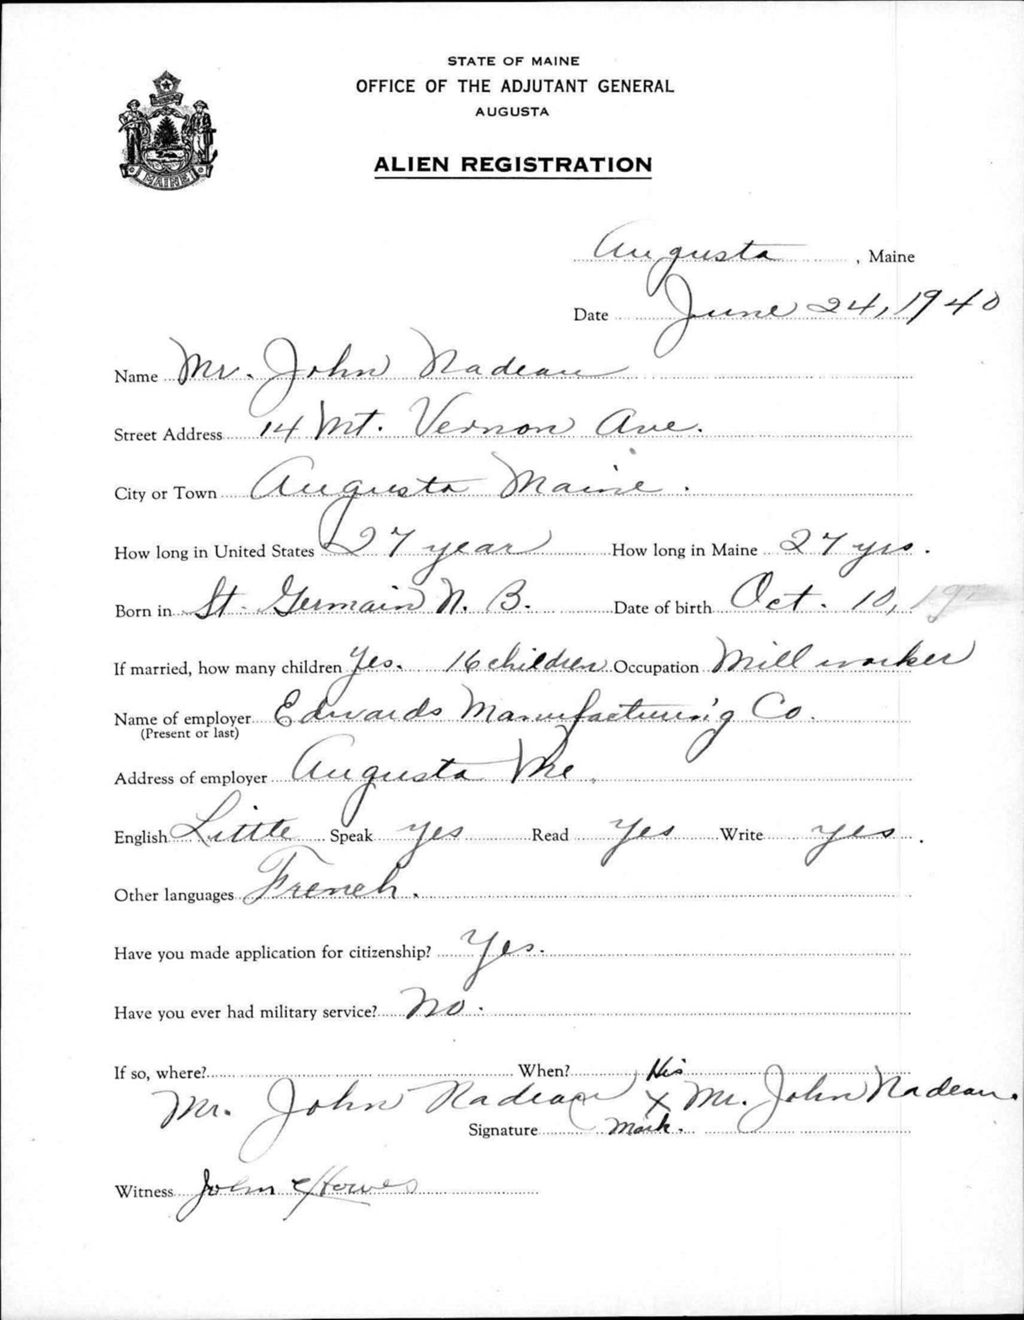 STATE OF MAINE
OFFICE OF THE ADJUTANT GENERAL
AUGUSTA
ALIEN REGISTRATION
MAINE
Augusta, Maine
Date June 24, 1940
Name Mr. John Nadeau
Street Address 14 Mt. Vernon Ave.
City or Town Augusta Maine.
How long in United States 27 year How long in Maine 27 yrs.
Born in St. Germain N. B. Date of birth Oct. 10,
If married, how many children Yes. 16 children Occupation Mill worker
Name of employer Edwards Manufacturing Co.
(Present or last)
Address of employer Augusta Me.
English Little Speak yes Read Yes Write yes.
Other languages French.
Have you made application for citizenship? Yes.
Have you ever had military service? No.
If so, where? When? His
Mr. John Nadeau X Mr. John Nadeau.
Signature Mark.
Witness John Howes